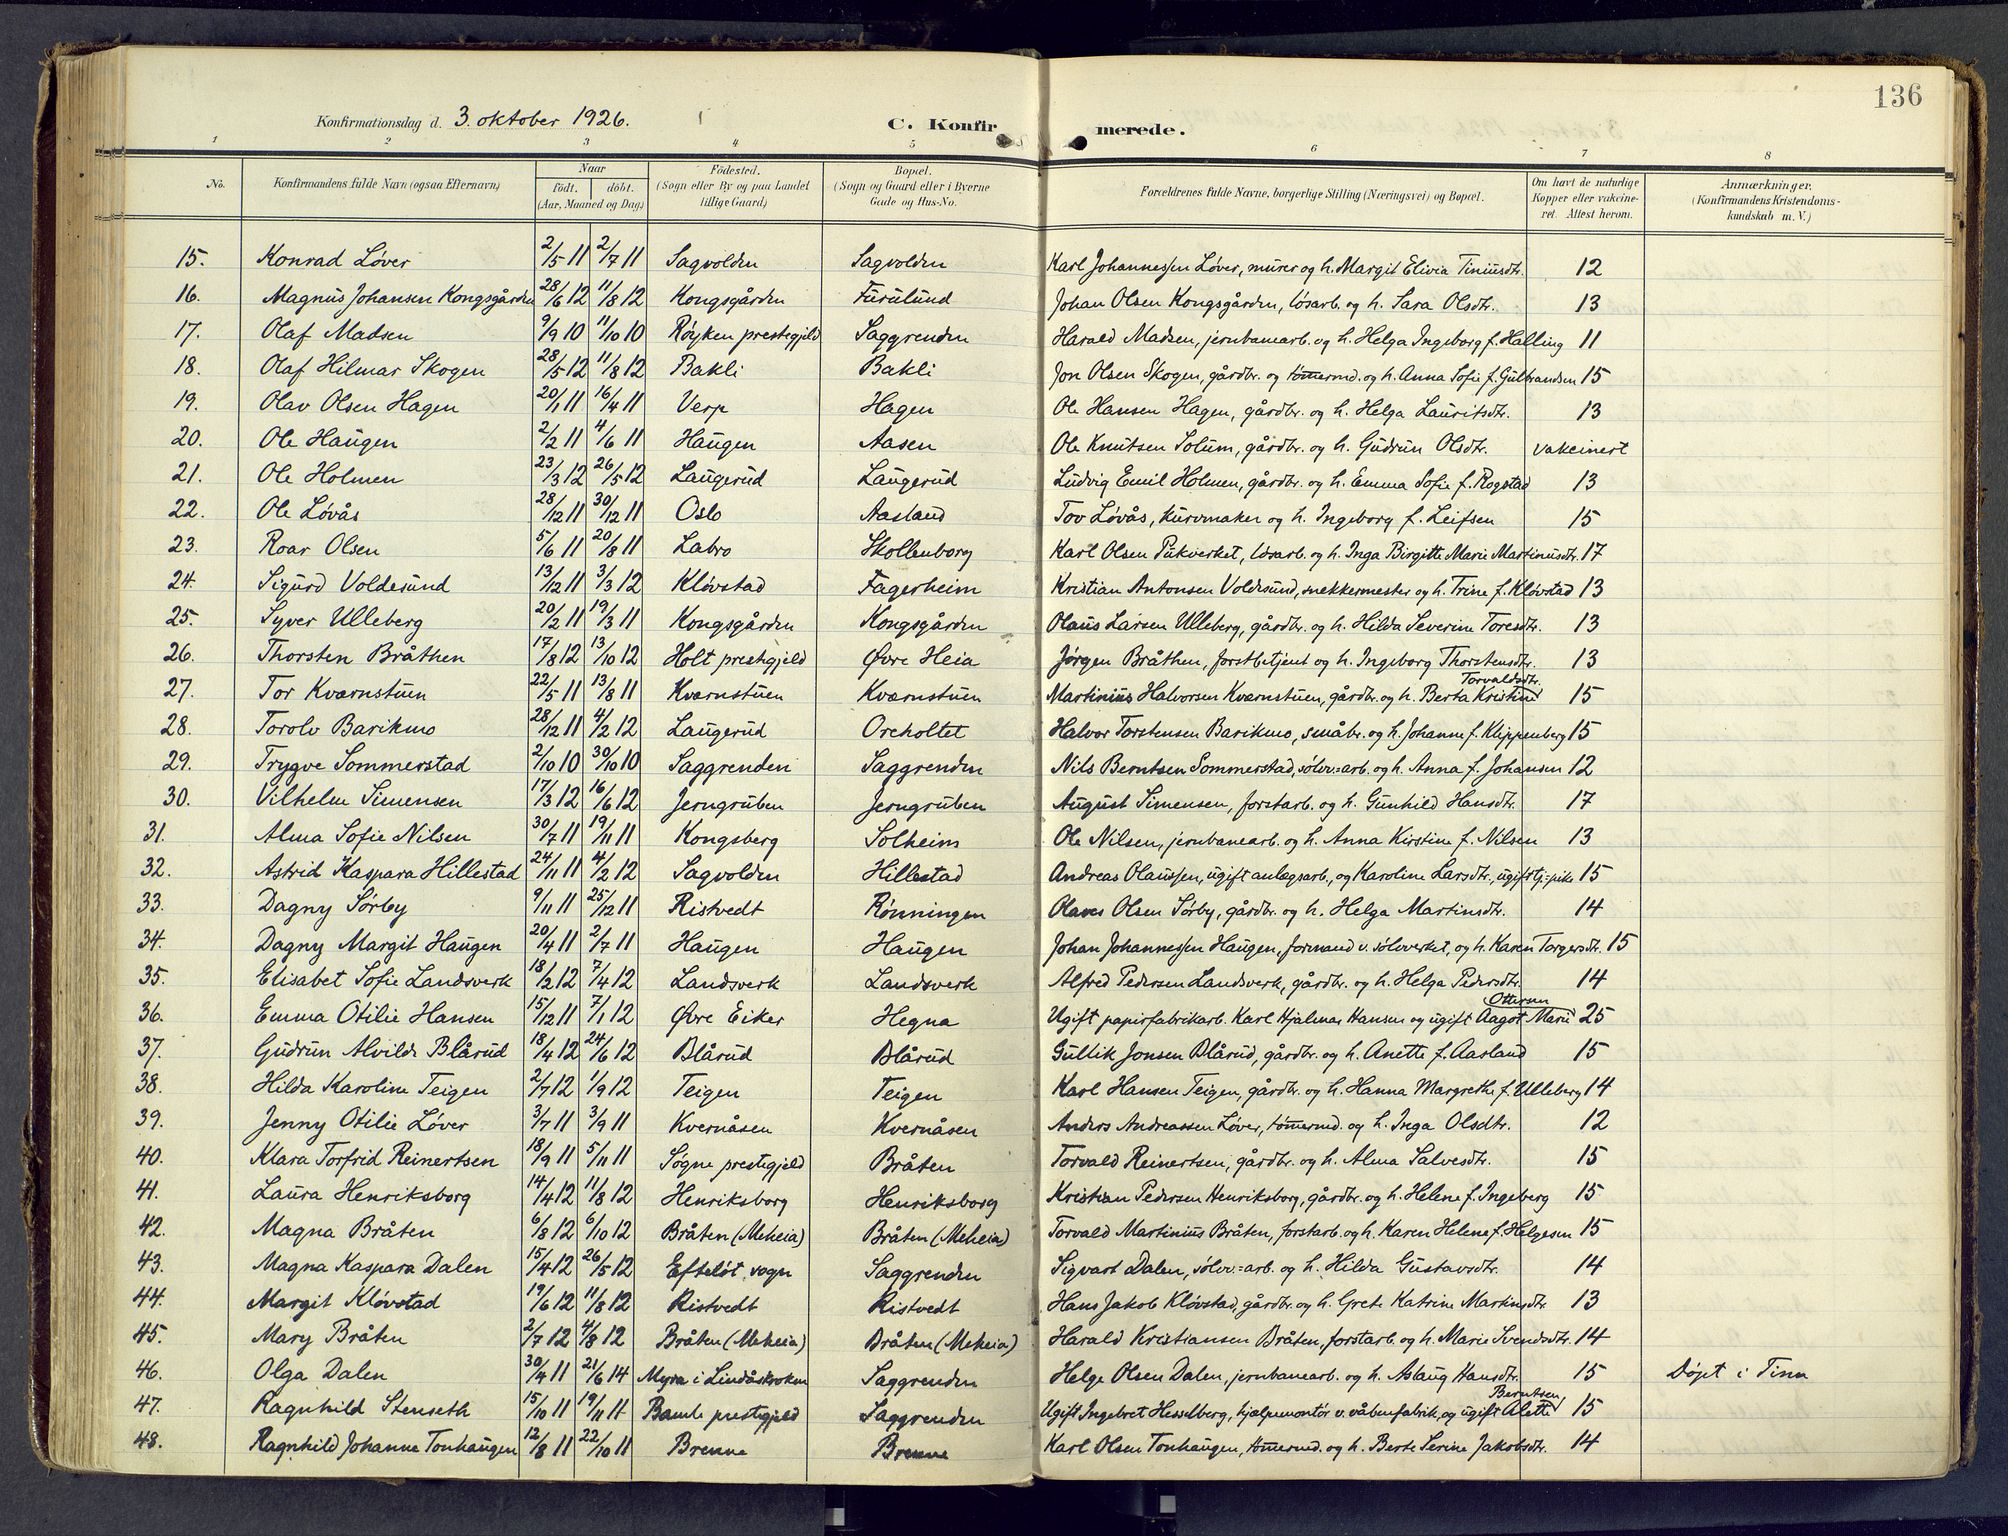 136
Konfirmationsdag d. 3. oktober 1926.
C. Konfirmerede.
1 2 3 4 5 6 7 8
No. | Konfirmandens fulde Navn (ogsaa Efternavn) | Naar født. döbt. (Aar, Maaned og Dag) | Födested. (Sogn eller By og paa Landet tillige Gaard) | Bopæl. (Sogn og Gaard eller i Byerne Gade og Hus-No. | Forældrenes fulde Navne, borgerlige Stilling (Næringsvei) og Bopæl. | Om havt de naturlige Kopper eller vakcineret. Attest herom. | Anmærkninger. (Konfirmandens Kristendomskundskab m. V.)
15. Konrad Løver 2/5 11 2/7 11 Sagvolden Sagvolden Karl Johannessen Løver, murer og h. Margit Elivia Tiniusdtr. 12
16. Magnus Johansen Kongsgården 28/6 12 11/8 12 Kongsgården Furulund Johan Olsen Kongsgården, løsarb. og h. Sara Olsdtr. 13
17. Olaf Madsen 9/9 10 11/10 10 Røyken prestegjeld Saggrenden Harald Madsen, jernbanearb. og h. Helga Ingeborg f. Halling 11
18. Olaf Hilmar Skogen 28/5 12 11/8 12 Bakli Bakli Jon Olsen Skogen, gårdbr. og tømermd. og h. Anna Sofie f. Gulbrandsen 15
19. Olav Olsen Hagen 20/1 11 16/4 11 Verp Hagen Ole Hansen Hagen, gårdbr. og h. Helga Lauritsdtr. 13
20. Ole Haugen 2/2 11 4/6 11 Haugen Aasen Ole Knutsen Solum, gårdbr. og h. Gudrun Olsdtr. vakcinert
21. Ole Holmen 23/3 12 26/5 12 Laugerud Laugerud Ludvig Emil Holmen, gårdbr. og h. Emma Sofie f. Rogstad 13
22. Ole Løvås 28/12 11 30/12 11 Oslo Aasland Tov Løvås, kurvmaker og h. Ingeborg f. Leifsen 15
23. Roar Olsen 5/6 11 20/8 11 Labro Skollenborg Karl Olsen Pukverket, løsarb. og h. Inga Birgitte Marie Martinusdtr. 17
24. Sigurd Voldesund 13/12 11 3/3 12 Kløvstad Fagerheim Kristian Antonsen Voldesund, snekkermester og h. Trine f. Kløvstad 13
25. Syver Ulleberg 20/2 11 19/3 11 Kongsgården Kongsgården Olaus Larsen Ulleberg, gårdbr. og h. Hilda Severine Toresdtr. 13
26. Thorsten Bråthen 17/8 12 13/10 12 Holt prestegjeld Øvre Heia Jørgen Bråthen, forstbetjent og h. Ingeborg Thorstensdtr. 13
27. Tor Kvernstuen 22/5 11 13/8 11 Kvernstuen Kvernstuen Martinius Halvorsen Kvernstuen, gårdbr. og h. Berta Kristine Torvaldsdtr. 15
28. Torolv Barikmo 28/12 11 4/2 12 Laugerud Oreholtet Halvor Torstensen Barikmo, småbr. og h. Johanne f. Klippenberg 15
29. Trygve Sommerstad 2/10 10 30/10 10 Saggrenden Saggrenden Nils Berntsen Sommerstad, sølvv.=arb. og h. Anna f. Johansen 12
30. Vilhelm Simensen 17/3 12 16/6 12 Jerngruben Jerngruben August Simensen, forstarb. og h. Gunhild Hansdtr. 17
31. Alma Sofie Nilsen 30/7 11 19/11 11 Kongsberg Solheim Ole Nilsen, jernbanearb. og h. Anna Kirstine f. Nilsen 13
32. Astrid Kaspara Hillestad 24/11 11 4/2 12 Sagvolden Hillestad Andreas Olaussen, ugift anlegsarb., og Karoline Larsdtr., ugift tj=pike 15
33. Dagny Sørby 9/11 11 25/12 11 Ristvedt Rønningen Olaves Olsen Sørby, gårdbr. og h. Helga Martinsdtr. 14
34. Dagny Margit Haugen 20/4 11 2/7 11 Haugen Haugen Johan Johannessen Haugen, formand v. sølvverket, og h. Karen Torgersdtr. 15
35. Elisabet Sofie Landsverk 18/2 12 7/4 12 Landsverk Landsverk Alfred Pedersen Landsverk, gårdbr. og h. Helga Pedersdtr. 14
36. Emma Otilie Hansen 15/12 11 7/1 12 Øvre Eiker Hegna Ugift papirfabrikarb. Karl Hjalmar Hansen og ugift Aagot Marie Ottersen 25
37. Gudrun Alvilde Blårud 18/4 12 24/6 12 Blårud Blårud Gullik Jonsen Blårud, gårdbr. og h. Anette f. Aasland 15
38. Hilda Karoline Teigen 2/7 12 1/9 12 Teigen Teigen Karl Hansen Teigen, gårdbr. og h. Hanna Margrethe f. Ulleberg 14
39. Jenny Otilie Løver 3/7 11 3/9 11 Kvernåsen Kvernåsen Anders Andreassen Løver, tømermd. og h. Inga Olsdtr. 12
40. Klara Torfrid Reinertsen 18/9 11 5/11 11 Søgne prestegjeld Bråten Torvald Reinertsen, gårdbr. og h. Alma Salvesdtr. 15
41. Laura Henriksborg 14/4 12 11/8 12 Henriksborg Henriksborg Kristian Pedersen Henriksborg, gårdbr. og h. Helene f. Ingeberg 15
42. Magna Bråten 6/8 12 6/10 12 Bråten (Meheia) Bråten (Meheia) Torvald Martinius Bråten, forstarb. og h. Karen Helene f. Helgesen 15
43. Magna Kaspara Dalen 15/4 12 26/5 12 Efteløt sogn Saggrenden Sigvart Dalen, sølvv.=arb. og h. Hilda Gustavsdtr. 14
44. Margit Kløvstad 19/6 12 11/8 12 Ristvedt Ristvedt Hans Jakob Kløvstad, gårdbr. og h. Grete Katrine Martinsdtr. 13
45. Mary Bråten 2/7 12 4/8 12 Bråten (Meheia) Bråten (Meheia) Harald Kristiansen Bråten, forstarb. og h. Marie Svendsdtr. 14
46. Olga Dalen 30/4 11 21/6 14 Myra i Lindåskroken Saggrenden Helge Olsen Dalen, jernbanearb. og h. Aslaug Hansdtr. 15 Døpt i Tinn
47. Ragnhild Stenseth 15/10 11 19/11 11 Bamle prestegjeld Saggrenden Ugift Ingebret Hesselberg, hjelpemontør v. våbenfabrik, og ugift Alette Berntsen 15
48. Ragnhild Johanne Tonhaugen 12/8 11 22/10 11 Brenne Brenne Karl Olsen Tonhaugen, tømermd. og h. Berte Serine Jakobsdtr. 14